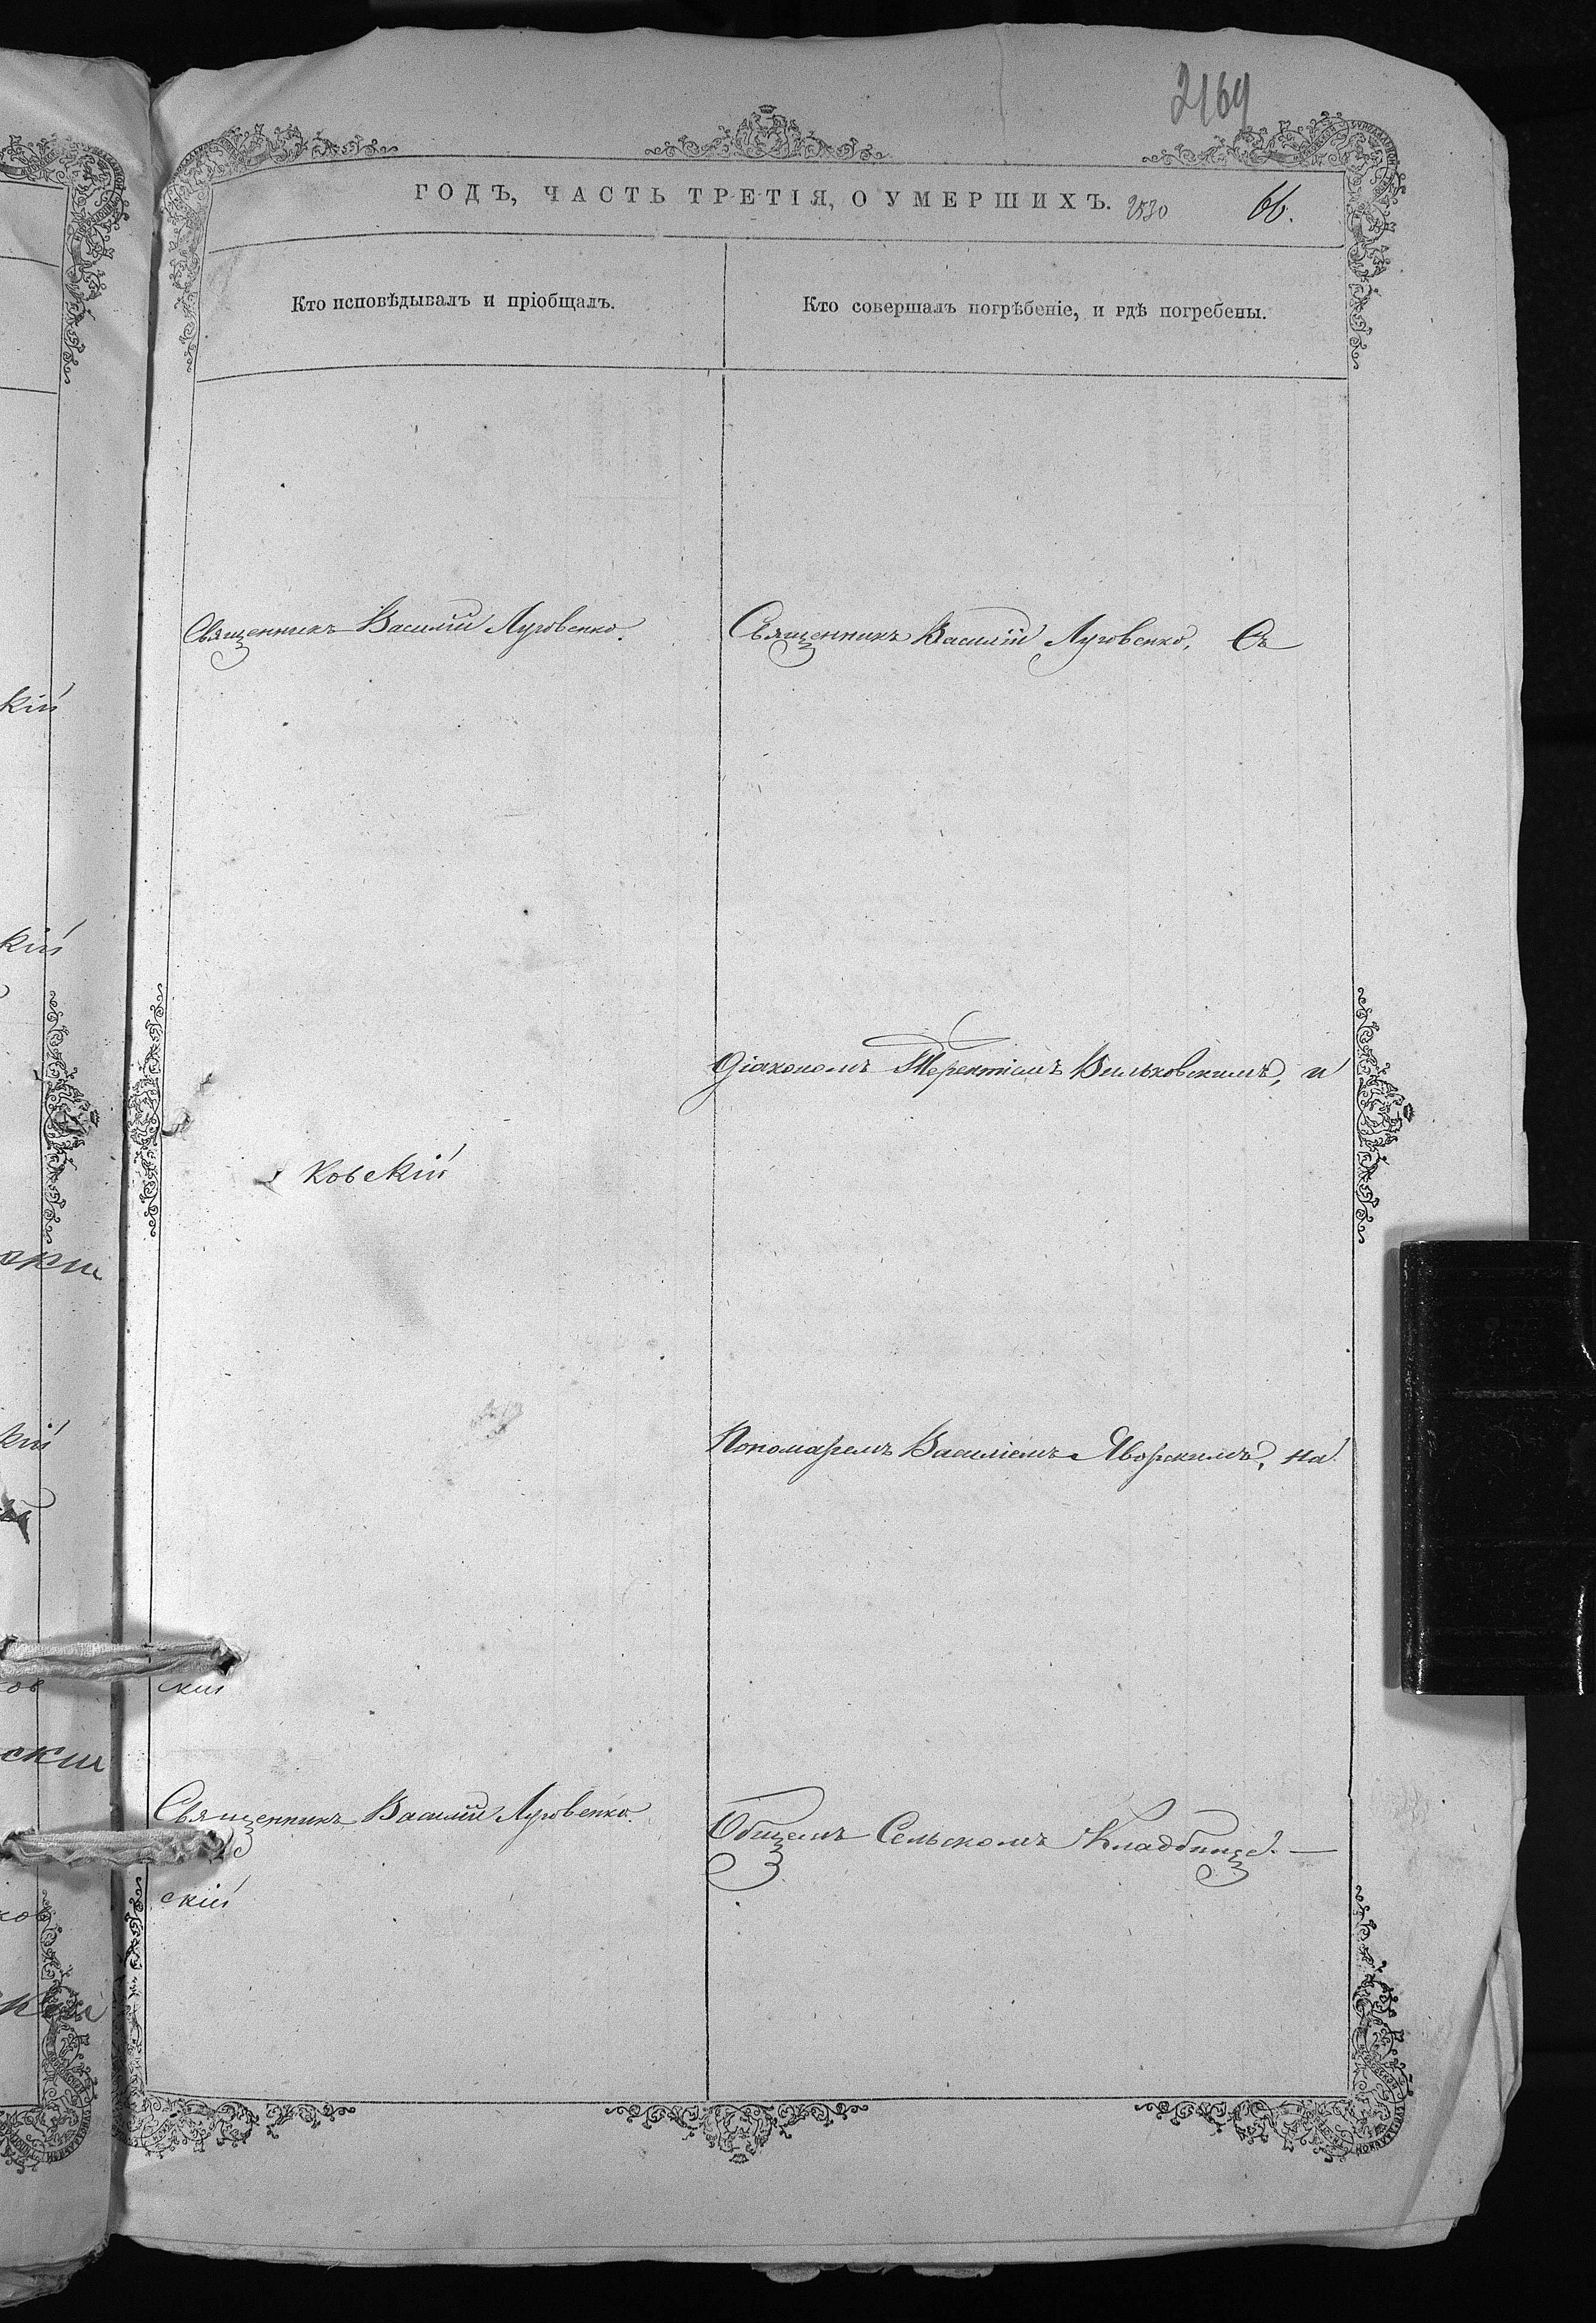 2164
ГОДЪ, ЧАСТЬ ТРЕТІЯ, О УМЕРШИХЪ. 2530 66.
Кто исповѣдывалъ и пріобщалъ.
Кто совершалъ погрѣбеніе, и гдѣ погребены.
Священникъ Василій Луговенко.
Священникъ Василій Луговенко, Съ
кій
кій
Діакономъ Терентіемъ Вильковскимъ, и
ковскій
кій
Пономаремъ Василіемъ Яворскимъ, на
ов
скій
Священникъ Василій Луговенко.
Общемъ Сельскомъ Кладбищѣ. —
скій
ков